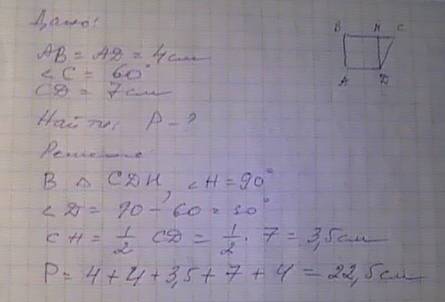 Дано:
B H C
AB = AD = 4 см
∠C = 60°
CD = 7 см
A D
Найти: P - ?
Решение
В Δ CDH, ∠H = 90°
∠D = 90 - 60 = 30°
CH = 1/2 CD = 1/2 · 7 = 3,5 см
P = 4 + 4 + 3,5 + 7 + 4 = 22,5 см